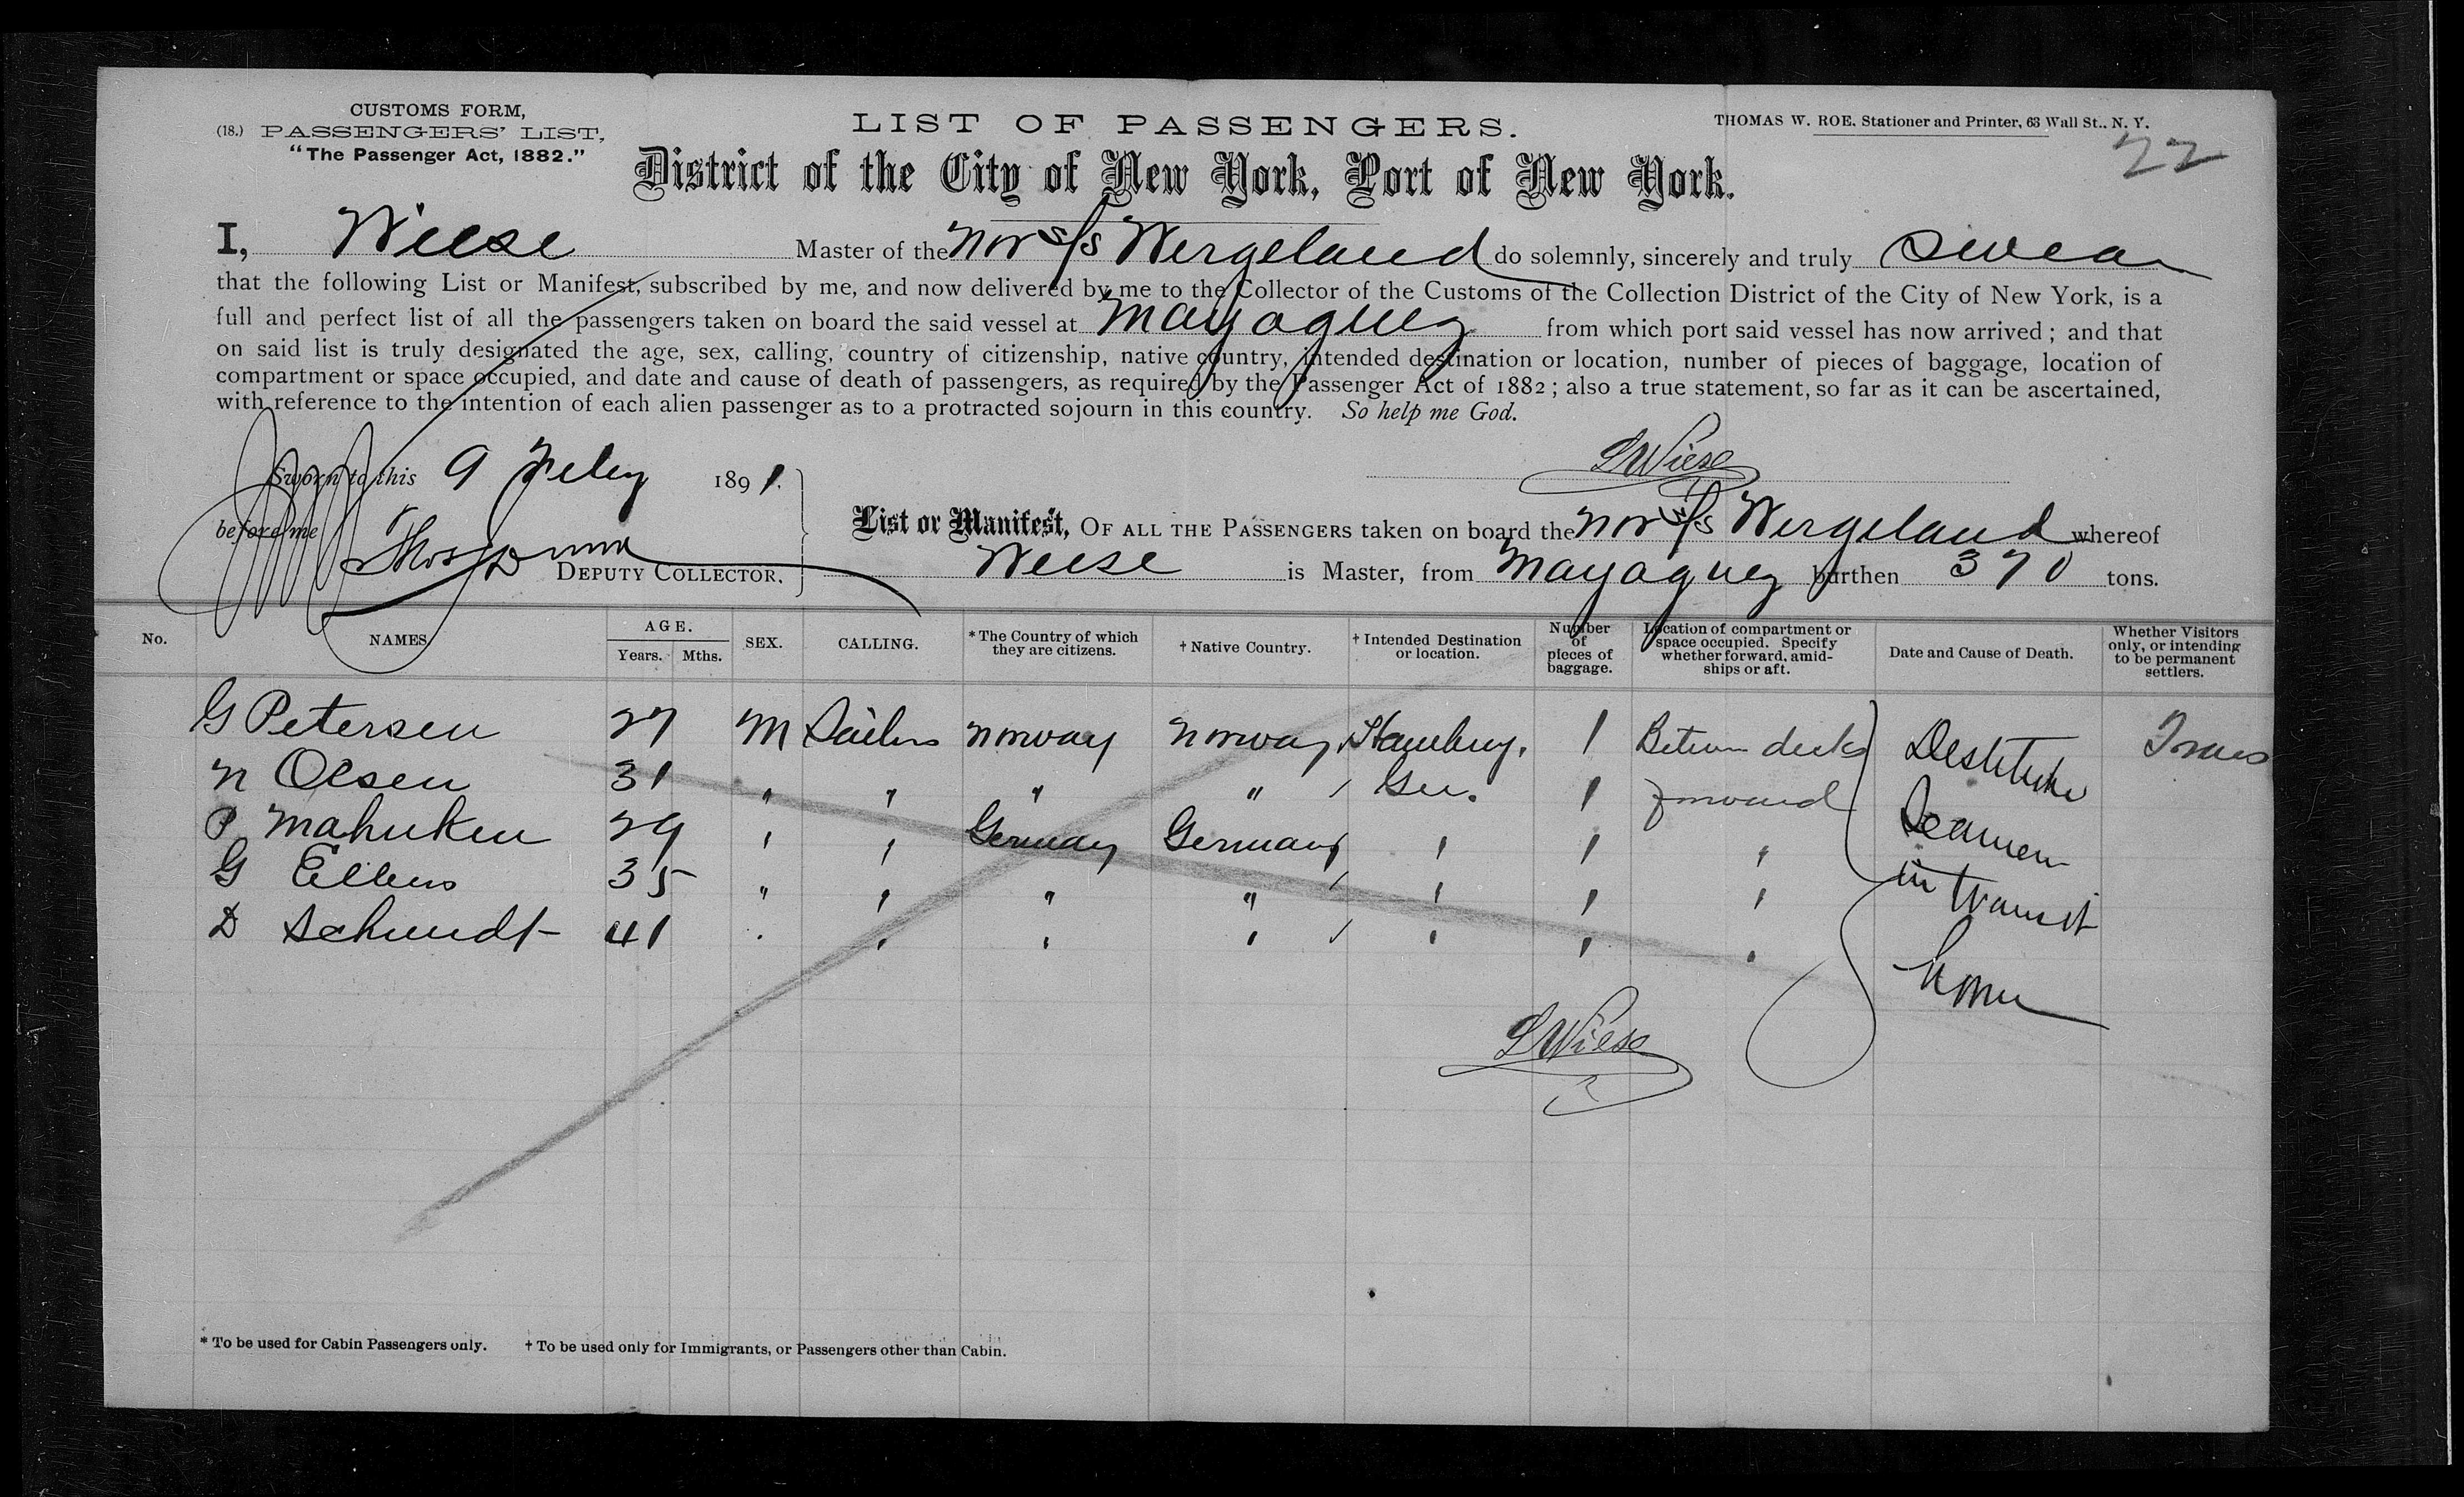 CUSTOMS FORM,
(18.) PASSENGERS' LIST,
"The Passenger Act, 1882."
LIST OF PASSENGERS.
THOMAS W. ROE, Stationer and Printer, 63 Wall St., N. Y.
22
District of the City of New York, Port of New York.
I, Wiese Master of the Nor s/s Wergeland do solemnly, sincerely and truly swear
that the following List or Manifest, subscribed by me, and now delivered by me to the Collector of the Customs of the Collection District of the City of New York, is a
full and perfect list of all the passengers taken on board the said vessel at Mayaguez from which port said vessel has now arrived; and that
on said list is truly designated the age, sex, calling, country of citizenship, native country, intended destination or location, number of pieces of baggage, location of
compartment or space occupied, and date and cause of death of passengers, as required by the Passenger Act of 1882; also a true statement, so far as it can be ascertained,
with reference to the intention of each alien passenger as to a protracted sojourn in this country. So help me God.
Sworn to this 9 Feby 1891.
LWiese
before me Thos Dunn
DEPUTY COLLECTOR.
List or Manifest, OF ALL THE PASSENGERS taken on board the Nor s/s Wergeland whereof
Wiese is Master, from Mayaguez burthen 370 tons.
No. NAMES. AGE. Years. Mths. SEX. CALLING. * The Country of which they are citizens. † Native Country. † Intended Destination or location. Number of pieces of baggage. Location of compartment or space occupied. Specify whether forward, amidships or aft. Date and Cause of Death. Whether Visitors only, or intending to be permanent settlers.
G Petersen 27 M Sailors Norway Norway Hamburg. 1 Between decks Destitute Trans
N Olsen 31 " " " " Ger. 1 forward Seamen
P 29 " " Germany Germany " 1 " in transit
G 35 " " " " " 1 "
D Schmidt 41 " " " " " 1 " home
LWiese
* To be used for Cabin Passengers only. † To be used only for Immigrants, or Passengers other than Cabin.